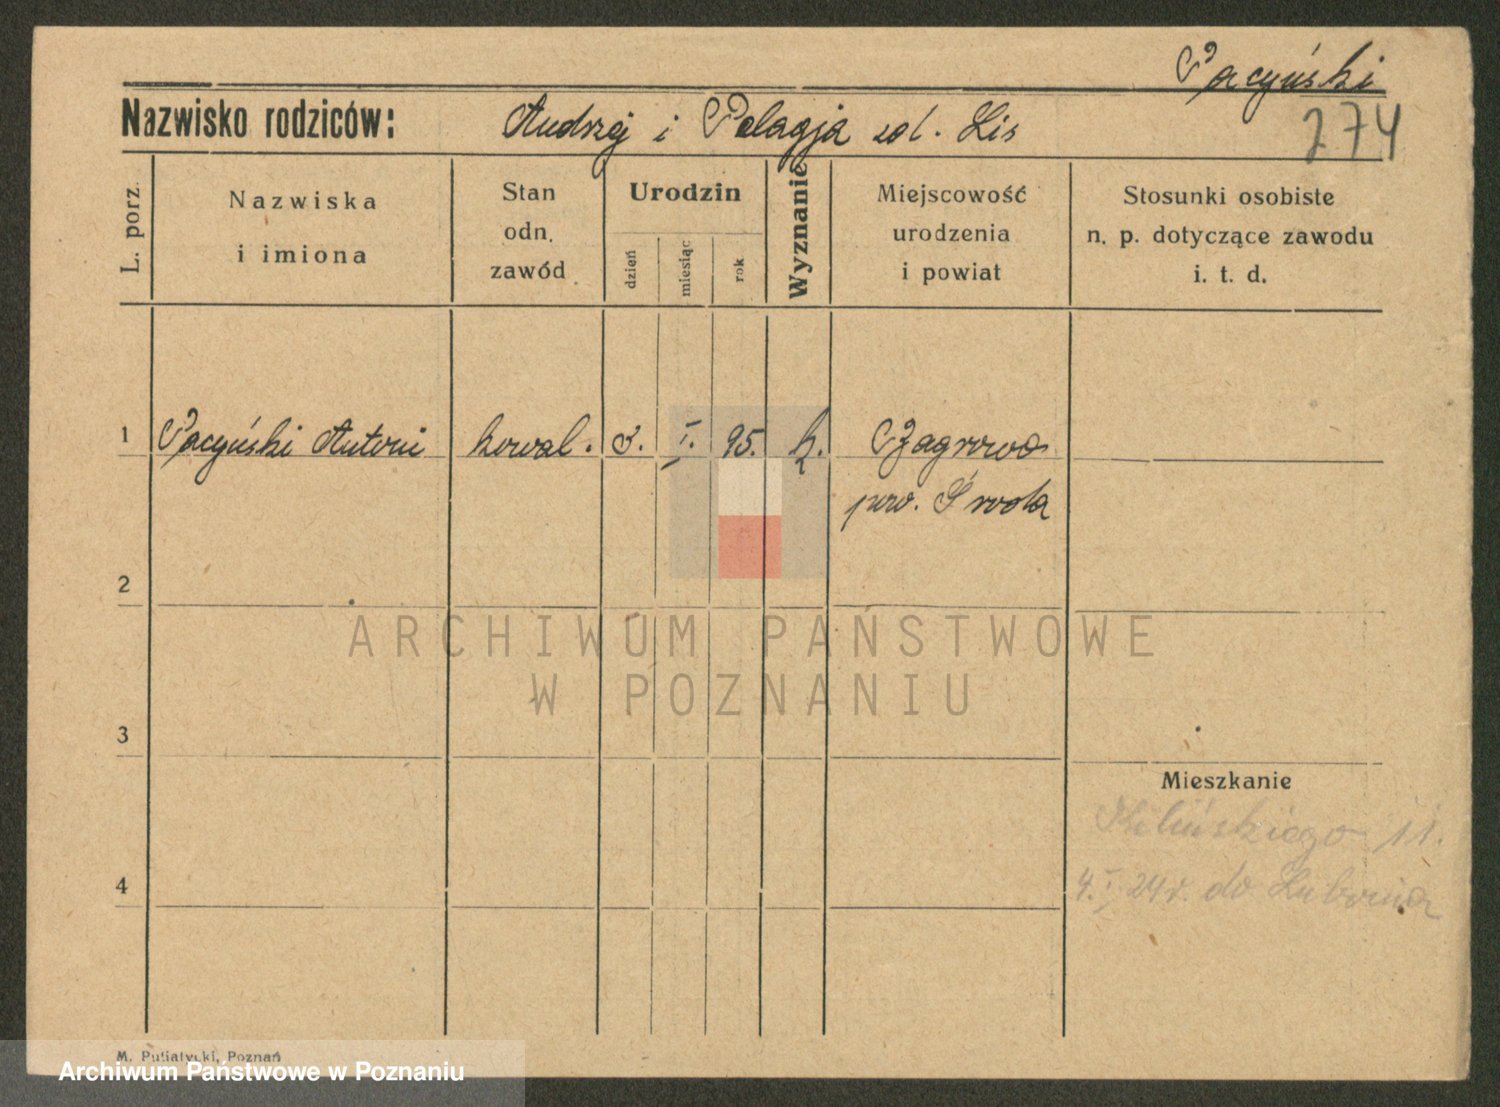 Pacyński
Nazwisko rodziców: Andrzej i Pelagja zd. Lis
274
L. porz.
Nazwiska
i imiona
Stan
odn.
zawód
Urodzin
dzień
miesiąc
rok
Wyznanie
Miejscowość
urodzenia
i powiat
Stosunki osobiste
n. p. dotyczące zawodu
i. t. d.
1 Pacyński Antoni kowal. 3. I. 95. k. Zagrowo
pow. Środa
2
ARCHIWUM PAŃSTWOWE
W POZNANIU
3
Mieszkanie
Kilińskiego 11.
4
4. I. 24 r. do Lubonia
M. Putiatycki, Poznań
Archiwum Państwowe w Poznaniu